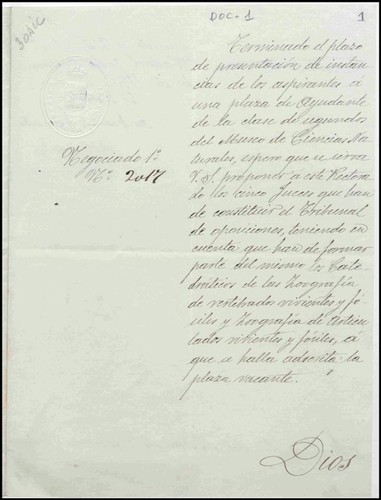 DOC-1
1
30Dic
Negociado 1º
Nº 2017
Terminado el plazo
de presentación de instan-
cias de los aspirantes á
una plaza de Ayudante
de la clase de segundos
del Museo de Ciencias Na-
turales, espero que se sirva
V.S. proponer a este Rectora-
do los cinco Jueces que han
de constituir el Tribunal
de oposiciones, teniendo en
cuenta que han de formar
parte del mismo los Cate-
dráticos de las Zoografía
de vertebrados vivientes y fó-
siles y Zoografía de Articu-
lados vivientes y fósiles, á
que se halla adscrita la
plaza vacante.
Dios